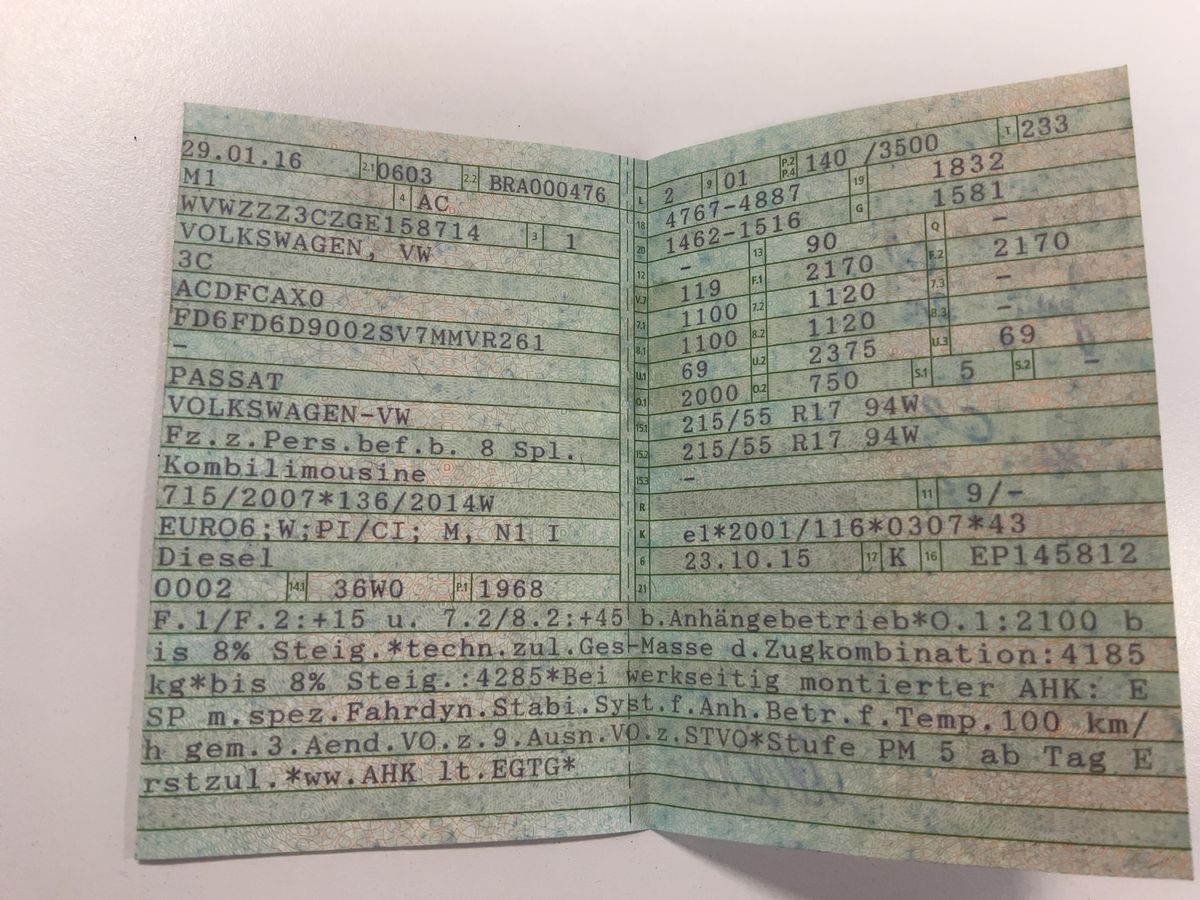 29.01.16 2.1 0603 2.2 BRA000476
M1 4 AC
WVWZZZ3CZGE158714 3 1
VOLKSWAGEN, VW
3C
ACDFCAX0
FD6FD6D9002SV7MMVR261
-
PASSAT
VOLKSWAGEN-VW
Fz.z.Pers.bef.b. 8 Spl.
Kombilimousine
715/2007*136/2014W
EURO6;W;PI/CI; M, N1 I
Diesel
0002 14.1 36W0 P.1 1968
L 2 9 01 P.2 P.4 140 /3500 T 233
18 4767-4887 19 1832
20 1462-1516 G 1581
12 - 13 90 Q -
V.7 119 F.1 2170 F.2 2170
7.1 1100 7.2 1120 7.3 -
8.1 1100 8.2 1120 8.3 -
U.1 69 U.2 2375 U.3 69
O.1 2000 O.2 750 S.1 5 S.2 -
15.1 215/55 R17 94W
15.2 215/55 R17 94W
15.3 -
R 11 9/-
K e1*2001/116*0307*43
6 23.10.15 17 K 16 EP145812
21
F.1/F.2:+15 u. 7.2/8.2:+45 b.Anhängebetrieb*O.1:2100 b
is 8% Steig.*techn.zul.Ges-Masse d.Zugkombination:4185
kg*bis 8% Steig.:4285*Bei werkseitig montierter AHK: E
SP m.spez.Fahrdyn.Stabi.Syst.f.Anh.Betr.f.Temp.100 km/
h gem.3.Aend.VO.z.9.Ausn.VO.z.STVO*Stufe PM 5 ab Tag E
rstzul.*ww.AHK lt.EGTG*